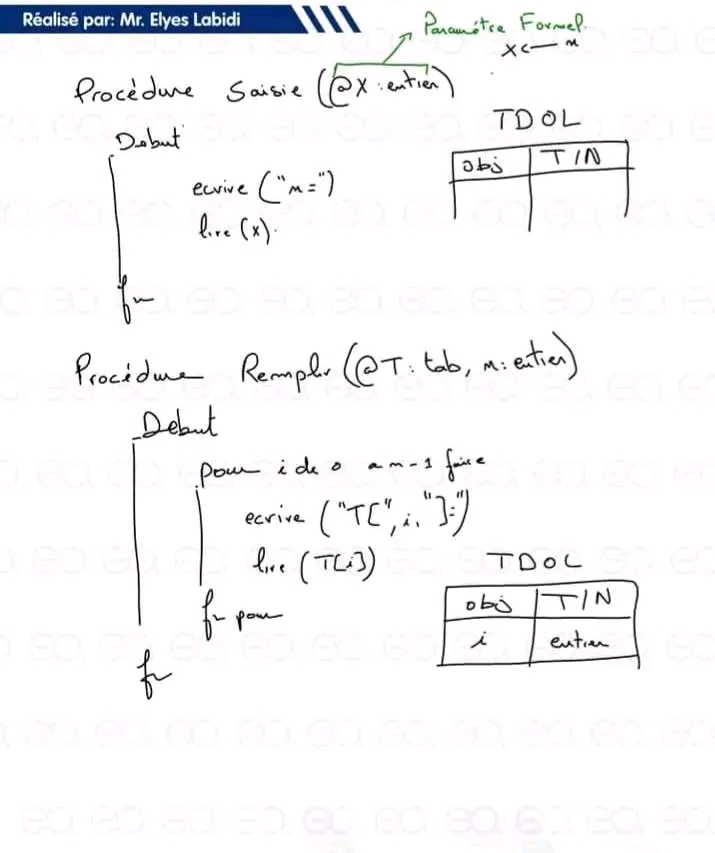 Réalisé par: Mr. Elyes Labidi
Paramétre Formel
X <— n
Procédure Saisie (@X : entier)
TDOL
Debut
obj T/N
ecrire ("n=")
lire (x).
fin
Procédure Remplir (@T: tab, n: entier)
Debut
pour i de 0 a n-1 faire
ecrire ("T[", i, "]:")
lire (T[i])
TDOL
fin pour
obj T/N
i entier
fin